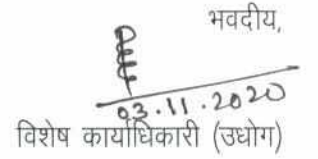 भवदीय,
03.11.2020
विशेष कार्याधिकारी (उधोग)